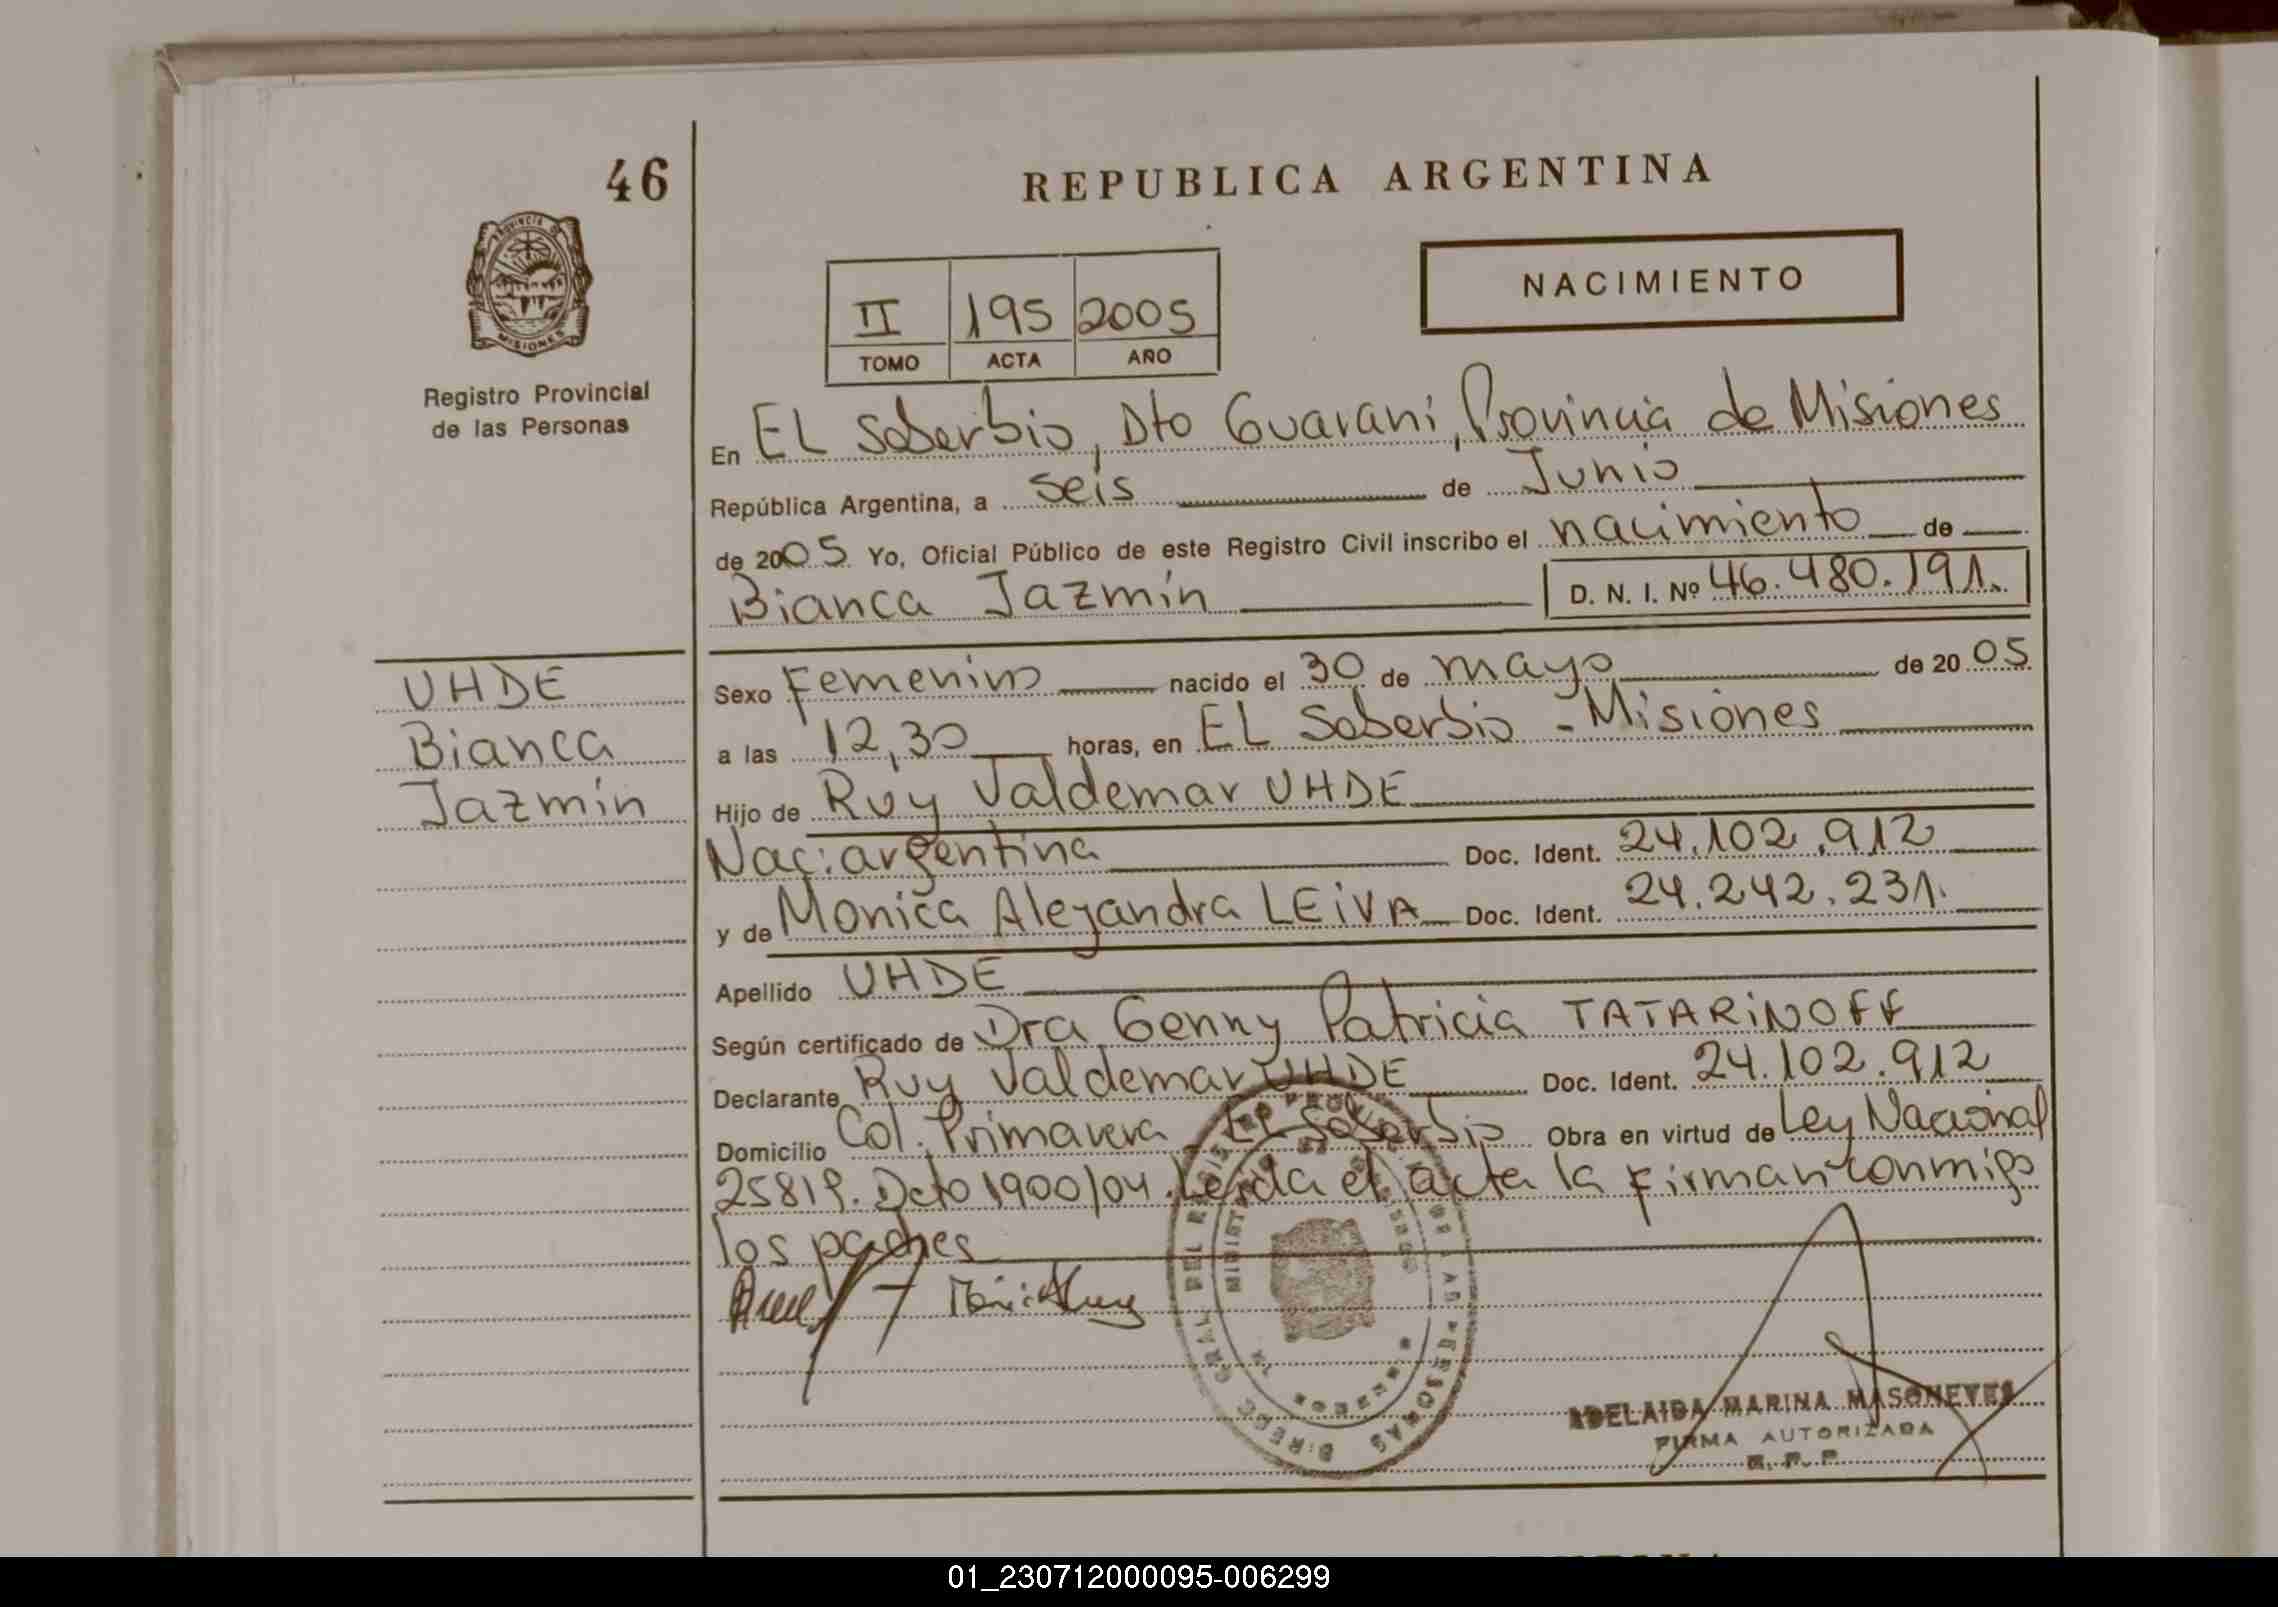 46
REPUBLICA ARGENTINA
PROVINCIA DE
MISIONES
Registro Provincial
de las Personas
NACIMIENTO
II 195 2005
TOMO ACTA AÑO
En EL Soberbio, Dto Guarani, Provincia de Misiones
República Argentina, a seis de Junio
de 2005 Yo, Oficial Público de este Registro Civil inscribo el nacimiento de
Bianca Jazmín D. N. I. Nº 46.480.191.
UHDE
Bianca
Jazmín
Sexo Femenino nacido el 30 de mayo de 2005
a las 12,30 horas, en EL Soberbio - Misiones
Hijo de Ruy Valdemar UHDE
Nac: argentina Doc. Ident. 24.102.912
y de Monica Alejandra LEIVA Doc. Ident. 24.242.231.
Apellido UHDE
Según certificado de Dra Genny Patricia TATARINOFF
Declarante Ruy Valdemar UHDE Doc. Ident. 24.102.912
Domicilio Col. Primavera El Soberbio Obra en virtud de Ley Nacional
25819. Dcto 1900/04. Leida el acta la firman conmigo
los padres
DIREC. GRAL. DEL REGISTRO PROV. DE LAS PERSONAS
ADELAIDA MARINA MASONEVES
FIRMA AUTORIZADA
R. P. P.
01_230712000095-006299